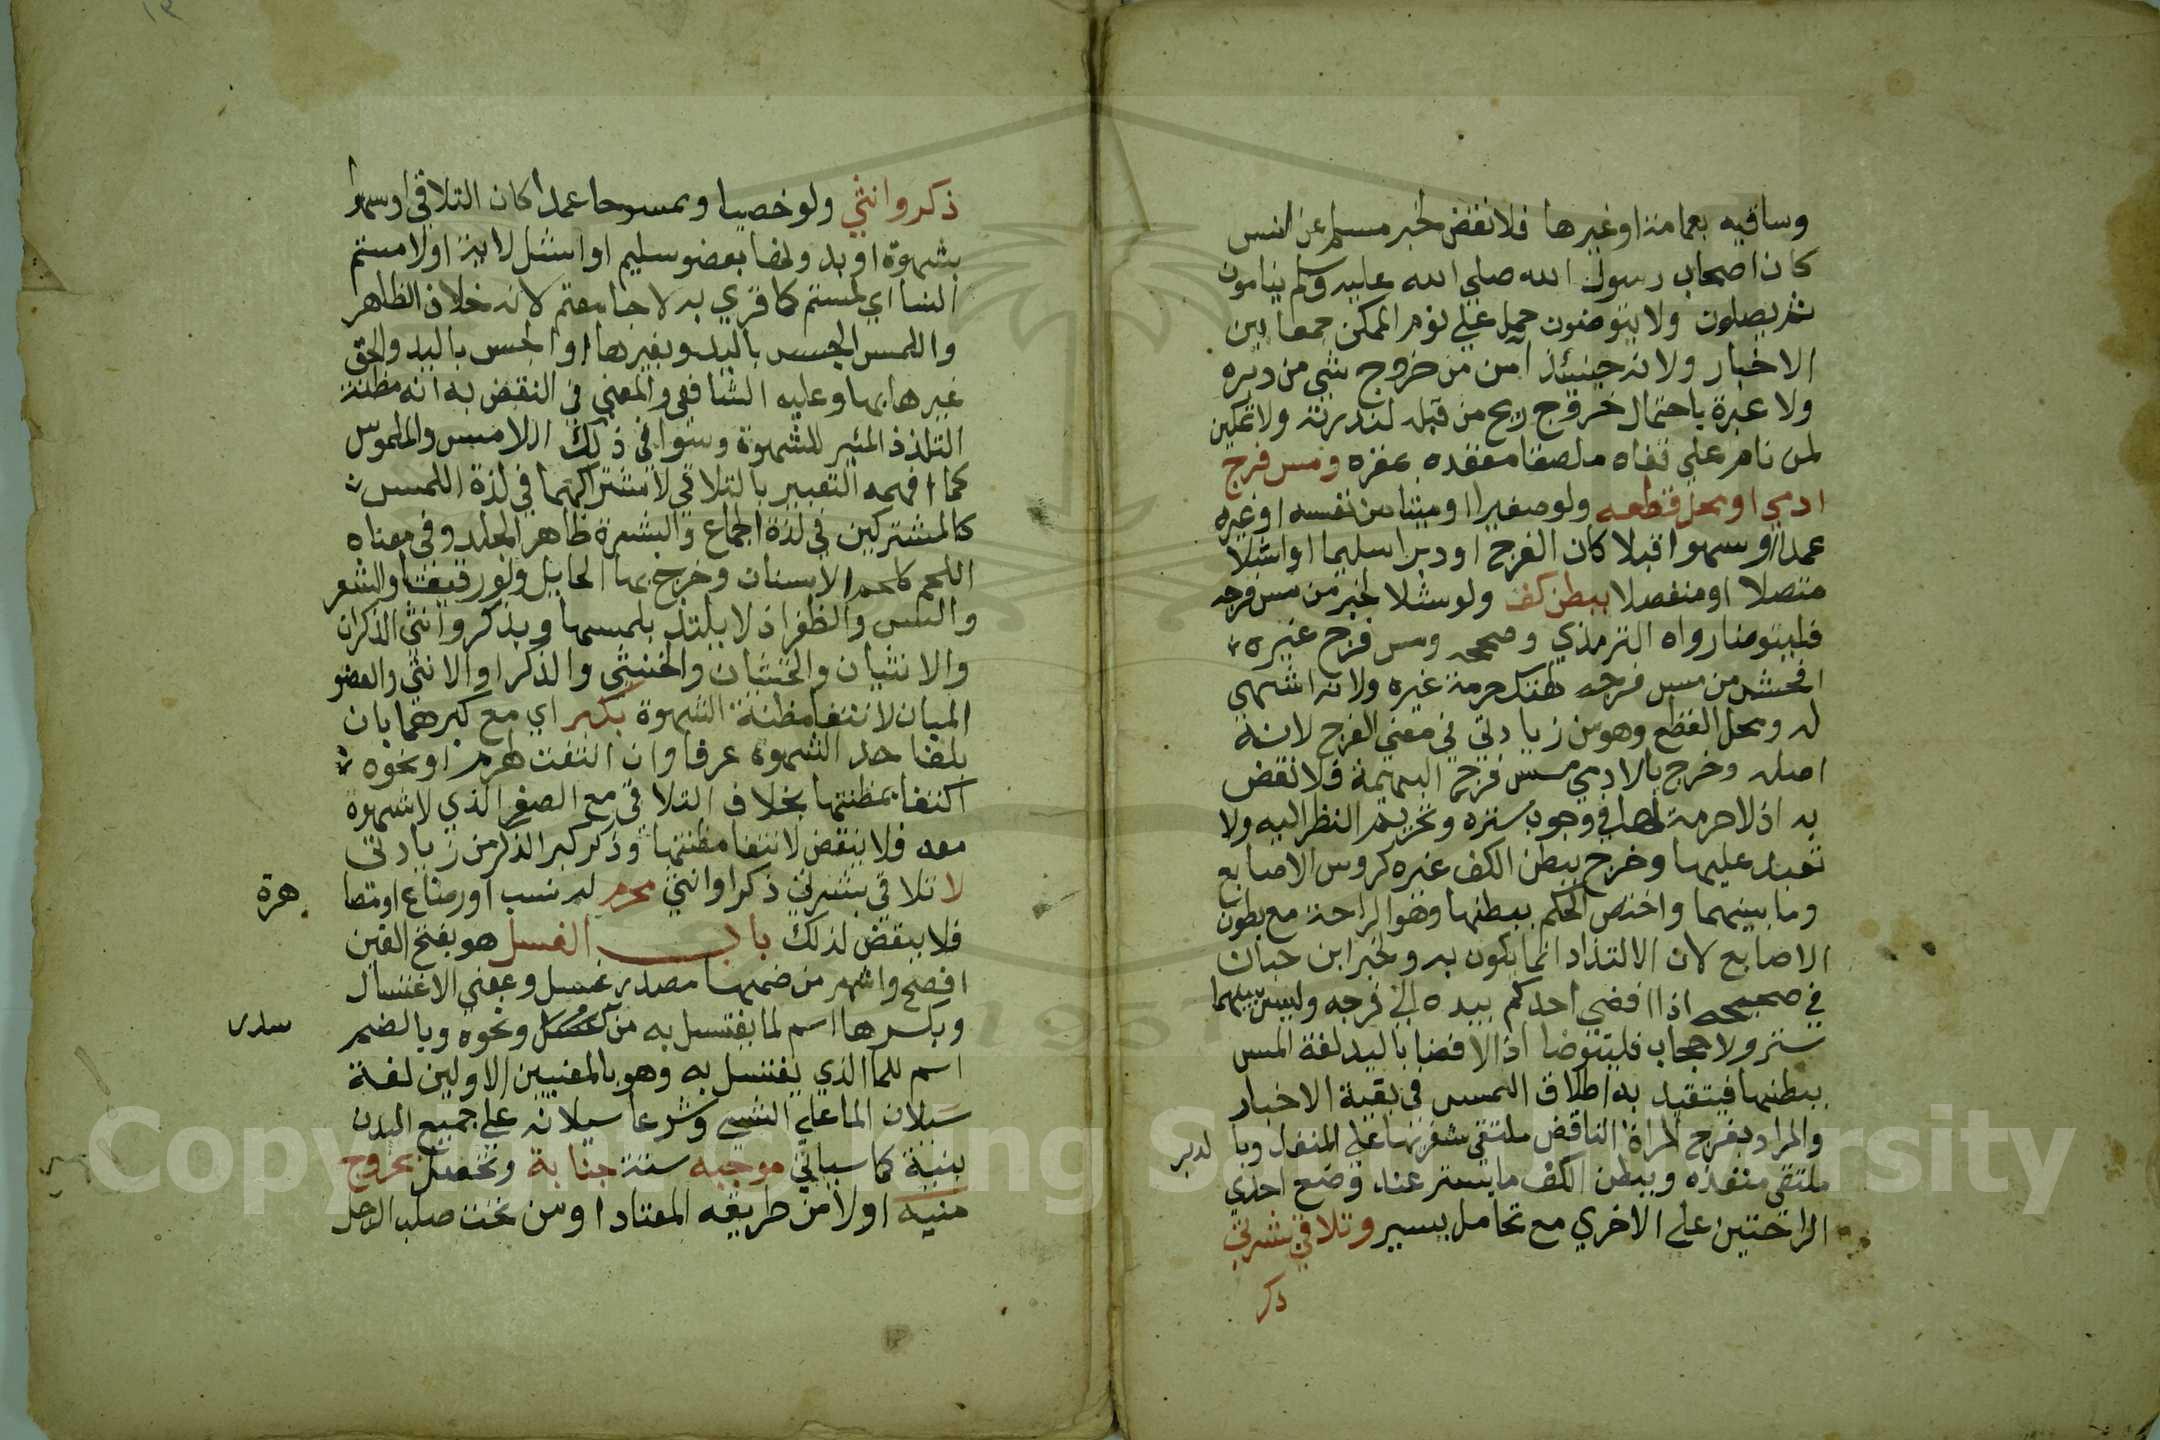 وساقيه بعمامة اوغيرها فلا نقض لخبر مسلم عن انس
كان اصحاب رسول الله صلي الله عليه وسلم ينامون
ثم يصلون ولا يتوضون حمل علي نوم الممكن جمعا بين
الاخبار ولانه حينئذ امن من خروج شي من دبره
ولا عبرة باحتمال خروج ريح من قبله لندرته ولا تمكين
لمن نام علي قفاه ملصقا مقعده بمقره ومس فرج
ادمي او محل قطعه ولو صغيرا او ميتا من نفسه او غيره
عمدا او سهوا قبلا كان الفرج او دبرا سليما او اشلا
متصلا او منفصلا ببطن كف ولو شلا لخبر من مس فرجه
فليتوضا رواه الترمذي وصححه ومس فرج غيره
افحش من مس فرجه لهتك حرمة غيره ولانه اشهي
له ومحل القطع وهو من زيادتي في معني الفرج لانه
اصله وخرج بالادمي مس فرج البهيمة فلا نقض
به اذ لا حرمة لها في وجوب ستره وتحريم النظر اليه ولا
تعبد عليها وخرج ببطن الكف غيره كروس الاصابع
وما بينهما واختص الحكم ببطنها وهو الراحة مع بطون
الاصابع لان الالتذاذ انما يكون به ولخبر ابن حبان
في صحيحه اذا افضي احدكم بيده الي فرجه وليس بينهما
ستر ولا حجاب فليتوضا اذ الافضا باليد لغة المس
ببطنها فيتقيد به اطلاق المس في بقية الاخبار
والمراد بفرج المراة الناقض ملتقي شفريها علي المنفذ وبا لدبر
ملتقي منفذه وببطن الكف ما يستتر عند وضع احدي
الراحتين علي الاخري مع تحامل يسير وتلاقي بشرتي
ذكر
ذكر وانثي ولو خصيا وممسوحا عمدا كان التلاقي او سهوا
بشهوة او بدونها بعضو سليم او اشل لاية او لامستم
النسا اي لمستم كما قري به لا جامعتم لانه خلاف الظاهر
واللمس الجس باليد وبغيرها او الجس باليد والحق
غيرها بها وعليه الشافعي والمعني في النقض به انه مظنة
التلذذ المثير للشهوة وسوا في ذلك اللامس والملموس
كما افهمه التعبير بالتلاقي لاشتراكهما في لذة اللمس
كالمشتركين في لذة الجماع والبشرة ظاهر الجلد وفي معناه
اللحم كلحم الاسنان وخرج بها الحايل ولو رقيقا والشعر
والسن والظفر اذ لا يلتذ بلمسها وبذكر وانثي الذكران
والانثيان والخنثيان والخنثي والذكر او الانثي والعضو
المبان لانتفا مظنة الشهوة بكبر اي مع كبرهما بان
بلغا حد الشهوة عرفا وان انتفت لهرم او نحوه
اكتفا بمظنتها بخلاف التلاقي مع الصغر الذي لا شهوة
معه فلا ينقض لانتفا مظنتها وذكر كبر الذكر من زيادتي
لا تلاقي بشرتي ذكر او انثي محرم له بنسب او رضاع او مصا
هرة
فلا ينقض لذلك باب الغسل هو بفتح الغين
افصح واشهر من ضمها مصدر غسل وبمعني الاغتسال
وبكسرها اسم لما يغتسل به من سدر ونحوه وبالضم
سدر
اسم للما الذي يغتسل به وهو بالمعنيين الاولين لغة
سيلان الما علي الشي وشرعا سيلانه علي جميع البدن
بنية كما سياتي موجبه ستة جنابة وتحصل بخروج
منيه اولا من طريقه المعتاد او من تحت صلب الرجل
1957
Copyright © King Saud University